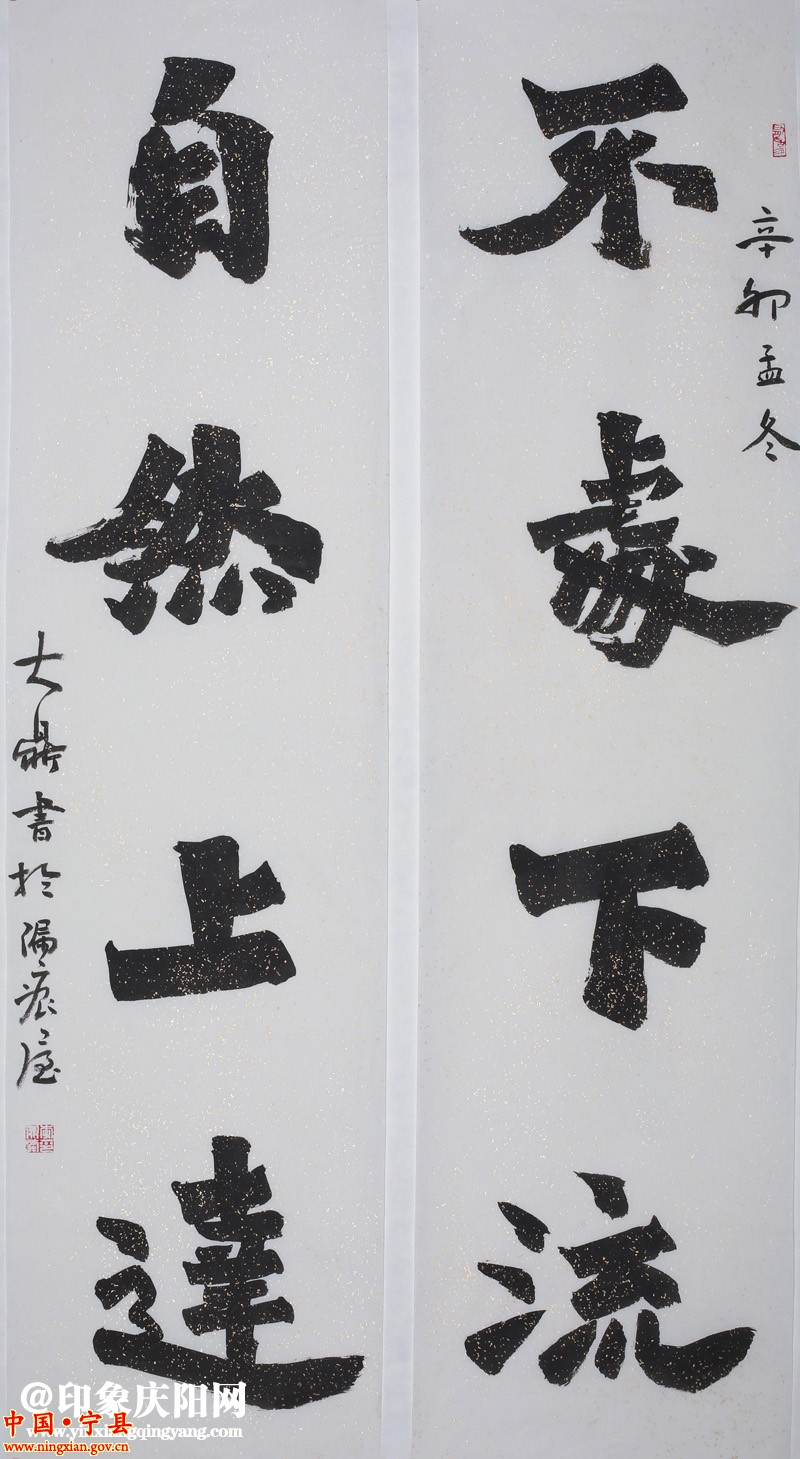 辛卯孟冬
不處下流
自然上達
大鼎書於漏痕屋
@印象庆阳网
www.yinxiangqingyang.com
中国·宁县
www.ningxian.gov.cn